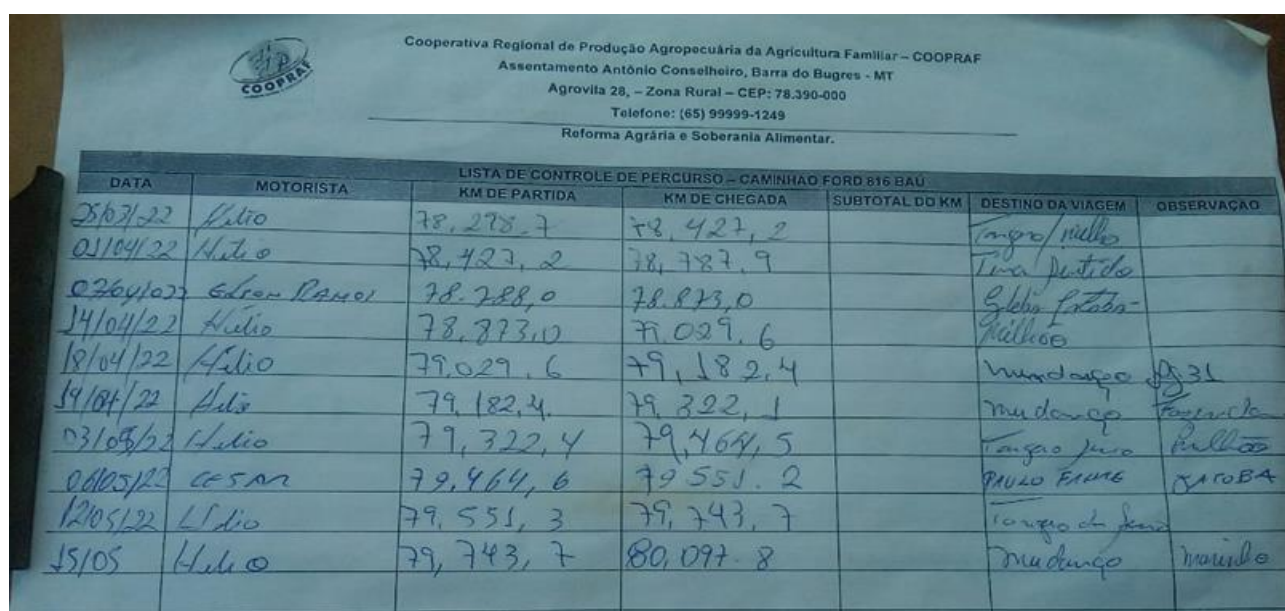 COOPRAF
Cooperativa Regional de Produção Agropecuária da Agricultura Familiar – COOPRAF
Assentamento Antônio Conselheiro, Barra do Bugres - MT
Agrovila 28, – Zona Rural – CEP: 78.390-000
Telefone: (65) 99999-1249
Reforma Agrária e Soberania Alimentar.
LISTA DE CONTROLE DE PERCURSO – CAMINHÃO FORD 816 BAÚ
DATA MOTORISTA KM DE PARTIDA KM DE CHEGADA SUBTOTAL DO KM DESTINO DA VIAGEM OBSERVAÇÃO
25/03/22 Helio 78,298.7 78,427,2
01/04/22 Helio 78,427,2 78,787.9
78.788,0 78.873,0
14/04/22 Helio 78,873,0 79.029.6 Milhão
18/04/22 Helio 79.029.6 79,182,4 31
19/04/22 Helio 79,182,4. 79,322,1 mudança
03/05/22 Helio 79,322,4 79,464,5
06/05/22 CESAR 79,464,6 79551.2 PAULO
12/05/22 79,551,3 79,743,7
15/05 Helio 79,743,7 80,097.8 mudança